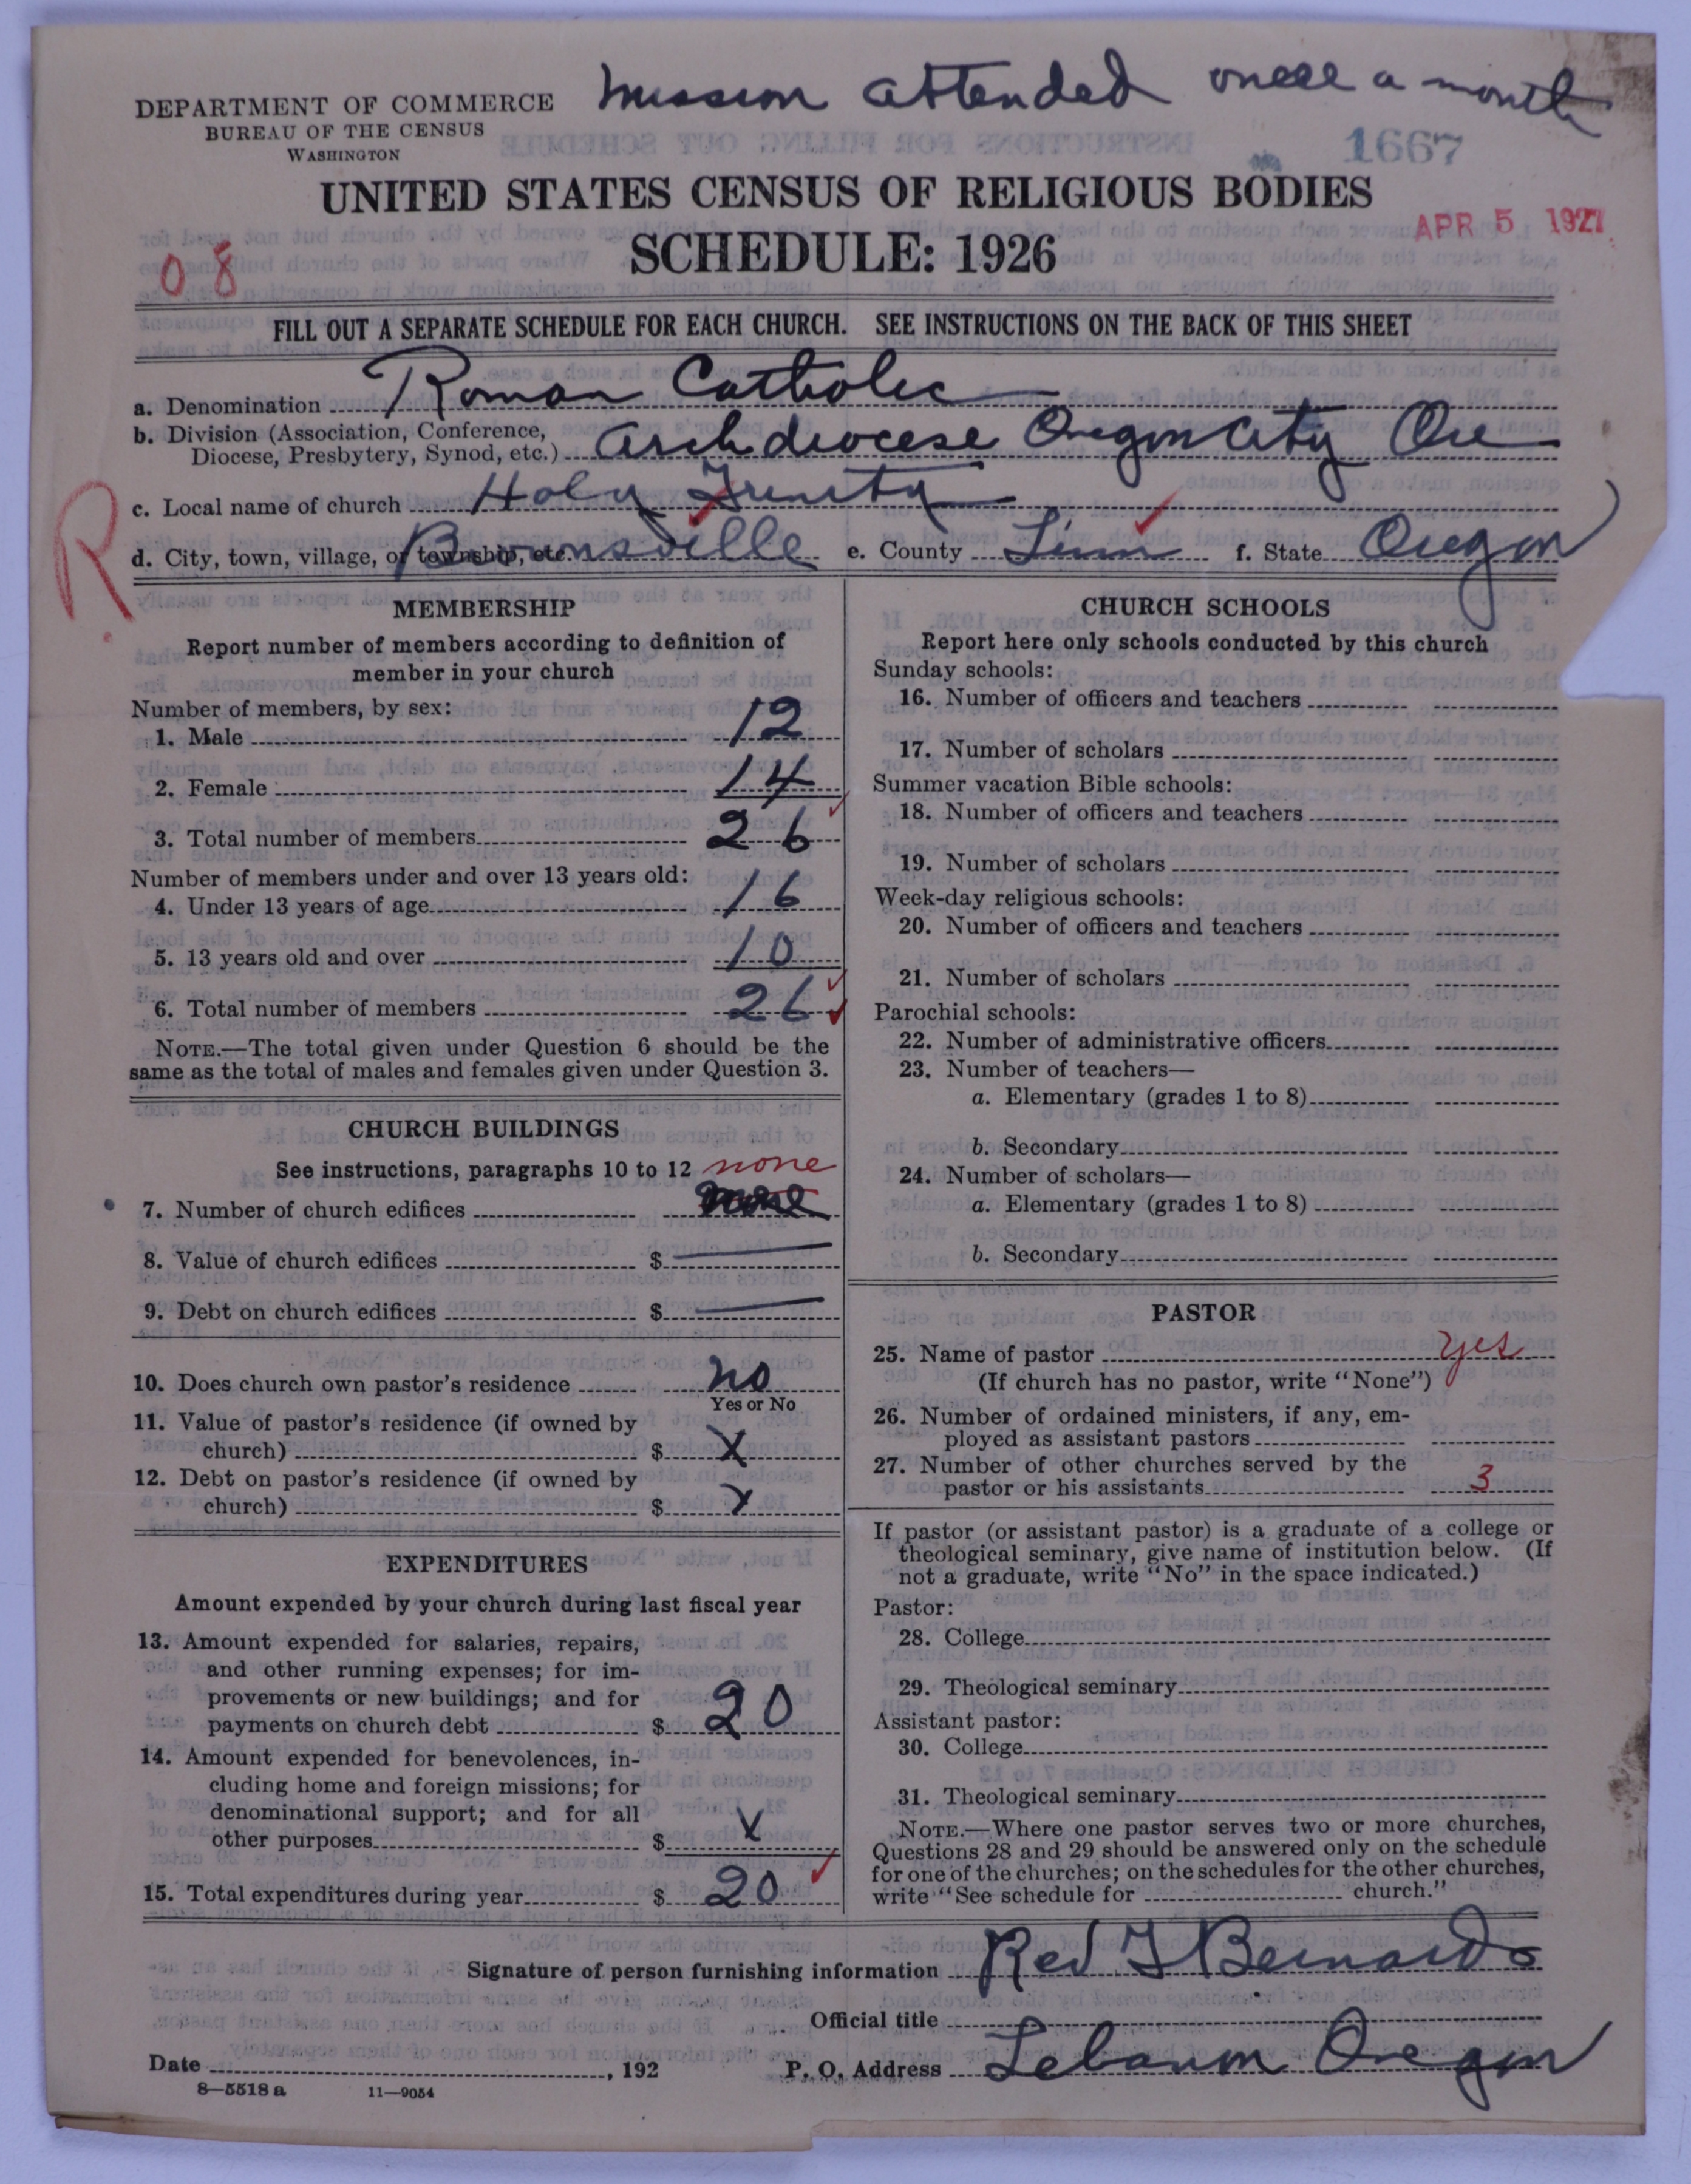 Mission attended once a month
DEPARTMENT OF COMMERCE
BUREAU OF THE CENSUS
WASHINGTON
1667
UNITED STATES CENSUS OF RELIGIOUS BODIES
APR 5 1927
SCHEDULE: 1926
08
FILL OUT A SEPARATE SCHEDULE FOR EACH CHURCH. SEE INSTRUCTIONS ON THE BACK OF THIS SHEET
a. Denomination Roman Catholic
b. Division (Association, Conference,
Diocese, Presbytery, Synod, etc.) Archdiocese Oregon City Ore
c. Local name of church Holy Trinity
R
d. City, town, village, or township, etc. Brownsville e. County Linn f. State Oregon
MEMBERSHIP
Report number of members according to definition of
member in your church
Number of members, by sex:
1. Male 12
2. Female 14
3. Total number of members 26
Number of members under and over 13 years old:
4. Under 13 years of age 16
5. 13 years old and over 10
6. Total number of members 26
NOTE.—The total given under Question 6 should be the
same as the total of males and females given under Question 3.
CHURCH BUILDINGS
See instructions, paragraphs 10 to 12 none
7. Number of church edifices none
8. Value of church edifices $ —
9. Debt on church edifices $ —
10. Does church own pastor's residence no
Yes or No
11. Value of pastor's residence (if owned by
church) $ X
12. Debt on pastor's residence (if owned by
church) $ X
EXPENDITURES
Amount expended by your church during last fiscal year
13. Amount expended for salaries, repairs,
and other running expenses; for im-
provements or new buildings; and for
payments on church debt $ 20
14. Amount expended for benevolences, in-
cluding home and foreign missions; for
denominational support; and for all
other purposes $ X
15. Total expenditures during year $ 20
CHURCH SCHOOLS
Report here only schools conducted by this church
Sunday schools:
16. Number of officers and teachers
17. Number of scholars
Summer vacation Bible schools:
18. Number of officers and teachers
19. Number of scholars
Week-day religious schools:
20. Number of officers and teachers
21. Number of scholars
Parochial schools:
22. Number of administrative officers
23. Number of teachers—
a. Elementary (grades 1 to 8)
b. Secondary
24. Number of scholars—
a. Elementary (grades 1 to 8)
b. Secondary
PASTOR
25. Name of pastor yes
(If church has no pastor, write "None")
26. Number of ordained ministers, if any, em-
ployed as assistant pastors
27. Number of other churches served by the
pastor or his assistants 3
If pastor (or assistant pastor) is a graduate of a college or
theological seminary, give name of institution below. (If
not a graduate, write "No" in the space indicated.)
Pastor:
28. College
29. Theological seminary
Assistant pastor:
30. College
31. Theological seminary
NOTE.—Where one pastor serves two or more churches,
Questions 28 and 29 should be answered only on the schedule
for one of the churches; on the schedules for the other churches,
write "See schedule for church."
Signature of person furnishing information Rev J Bernards
Official title
Date , 192 P. O. Address Lebanon Oregon
8—5518 a 11—9054